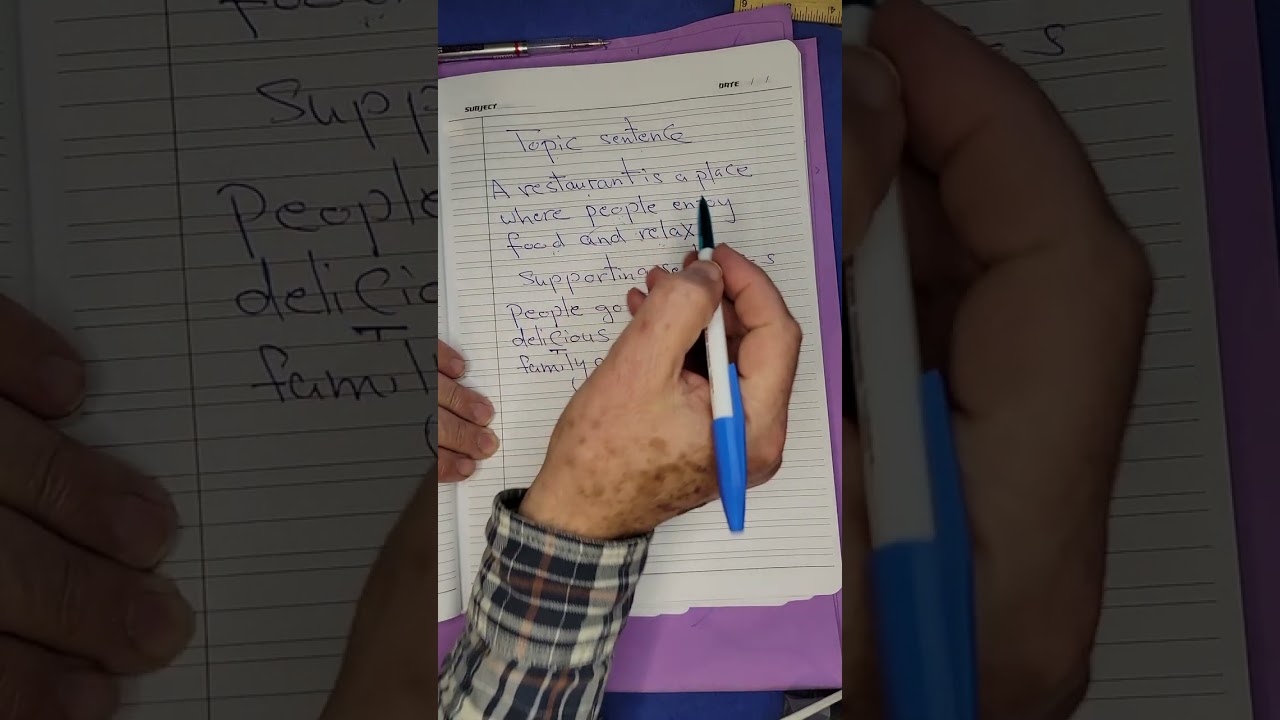 SUBJECT
DATE
Topic sentence
A restaurant is a place
where people enjoy
food and relax
Supporting
People go
delicious
family